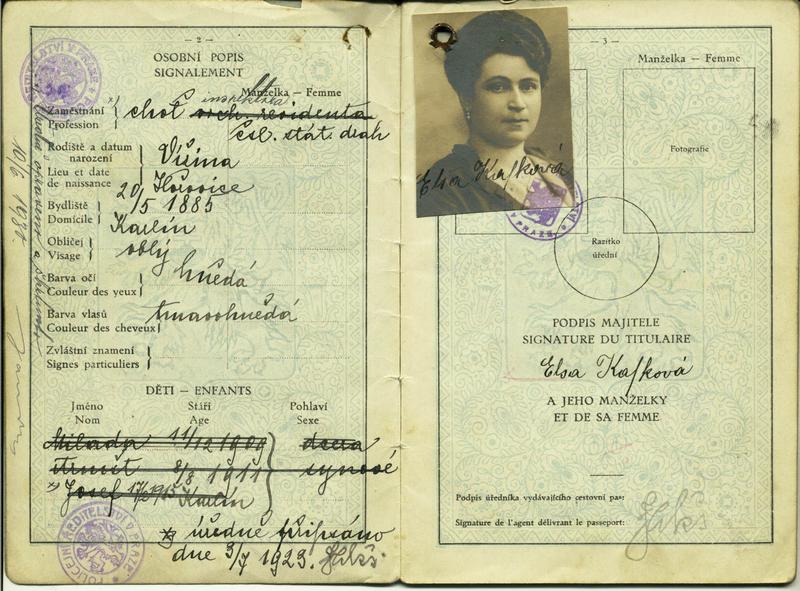 – 2 –
OSOBNÍ POPIS
SIGNALEMENT
Manželka – Femme
Zaměstnání
Profession
choť inspektora
čsl. stát. drah
Rodiště a datum
narození
Lieu et date
de naissance
Všina
Hořovice
20/5 1885
Bydliště
Domicile
Karlín
Obličej
Visage
oblý
Barva očí
Couleur des yeux
hnědá
Barva vlasů
Couleur des cheveux
tmavohnědá
Zvláštní znamení
Signes particuliers
DĚTI – ENFANTS
Jméno
Nom
Stáří
Age
Pohlaví
Sexe
Milada 11/12 1909 dcera
8/8 1911 synové
Josef Karlín
úředně připsáno
dne 3/7 1923.
10/6 1927.
POLICEJNÍ ŘEDITELSTVÍ V PRAZE
– 3 –
Manželka – Femme
Elsa Kafková
V PRAZE
Fotografie
Razítko
úřední
PODPIS MAJITELE
SIGNATURE DU TITULAIRE
Elsa Kafková
A JEHO MANŽELKY
ET DE SA FEMME
Podpis úředníka vydávajícího cestovní pas:
Signature de l'agent délivrant le passeport: